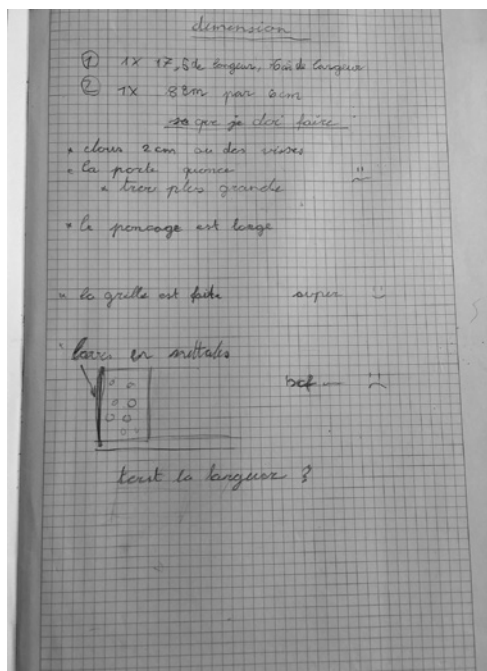 dimension
① 1X 17,5 de longeur, 6 cm de largeur
② 1X 8 cm par 6 cm
so que je doi faire
* clous 2 cm ou des visses
* la porte
* trou plus grande
* le poncage est longe
* la grille est faite super :)
* barre en mettales
bof — :(
tout la langueur ?